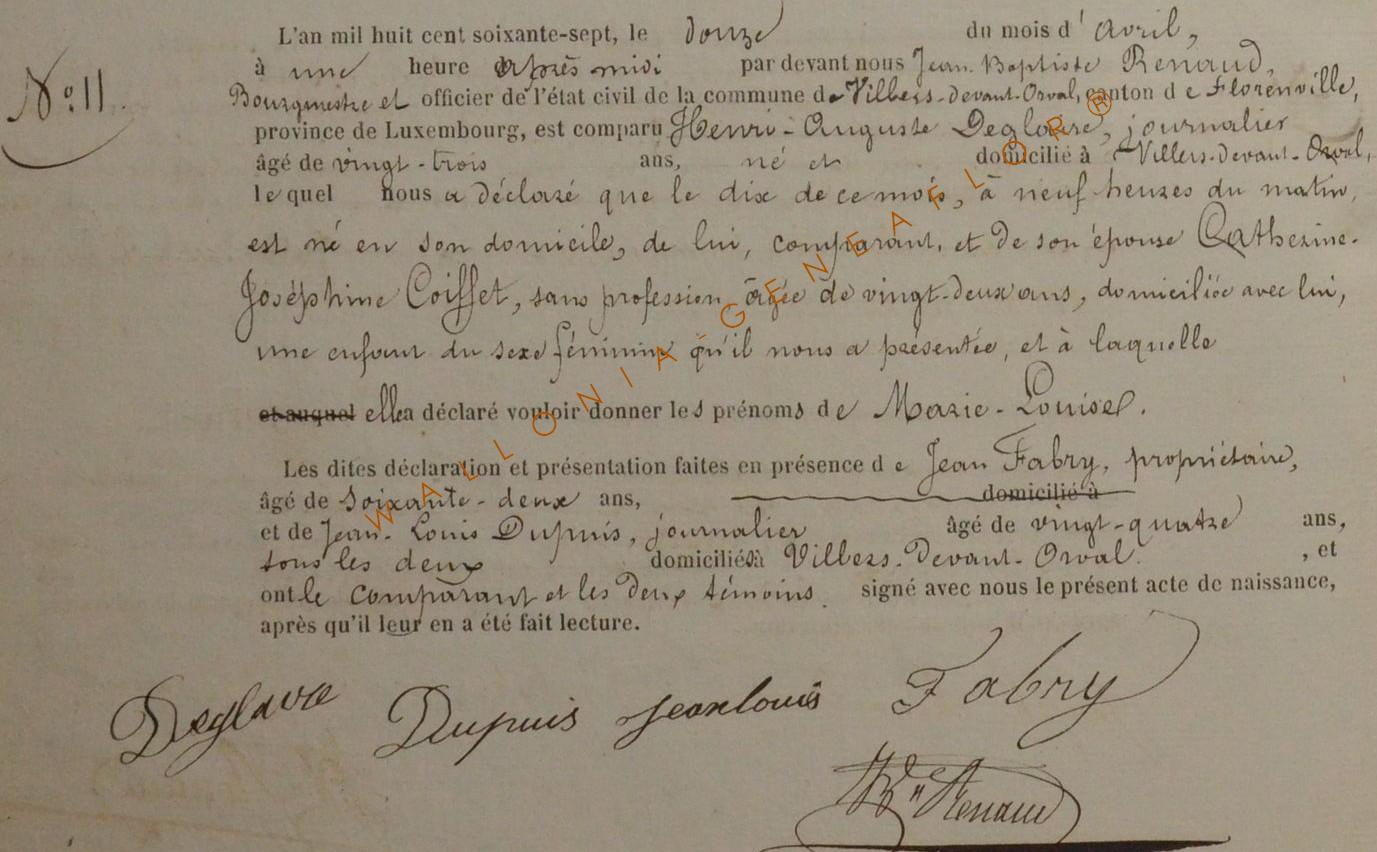 L'an mil huit cent soixante-sept, le douze du mois d'Avril,
à une heure après midi par devant nous Jean-Baptiste Renaud,
N° 11.
Bourgmestre et officier de l'état civil de la commune de Villers-devant-Orval, canton de Florenville,
province de Luxembourg, est comparu Henri-Auguste Deglaire, journalier
âgé de vingt-trois ans, né et domicilié à Villers-devant-Orval,
lequel nous a déclaré que le dix de ce mois, à neuf heures du matin,
est né en son domicile, de lui, comparant, et de son épouse Catherine-
Joséphine Coiffet, sans profession, âgée de vingt-deux ans, domiciliée avec lui,
une enfant du sexe féminin qu'il nous a présentée, et à laquelle
et auquel elle a déclaré vouloir donner les prénoms de Marie-Louise.
Les dites déclaration et présentation faites en présence de Jean Fabry, propriétaire,
âgé de soixante-deux ans, domicilié à
et de Jean-Louis Dupuis, journalier âgé de vingt-quatre ans,
tous les deux domiciliés à Villers-devant-Orval. , et
ont le comparant et les deux témoins signé avec nous le présent acte de naissance,
après qu'il leur en a été fait lecture.
Dupuis jean louis Fabry
Renaud
WALLONIA GENEAFLOR ®